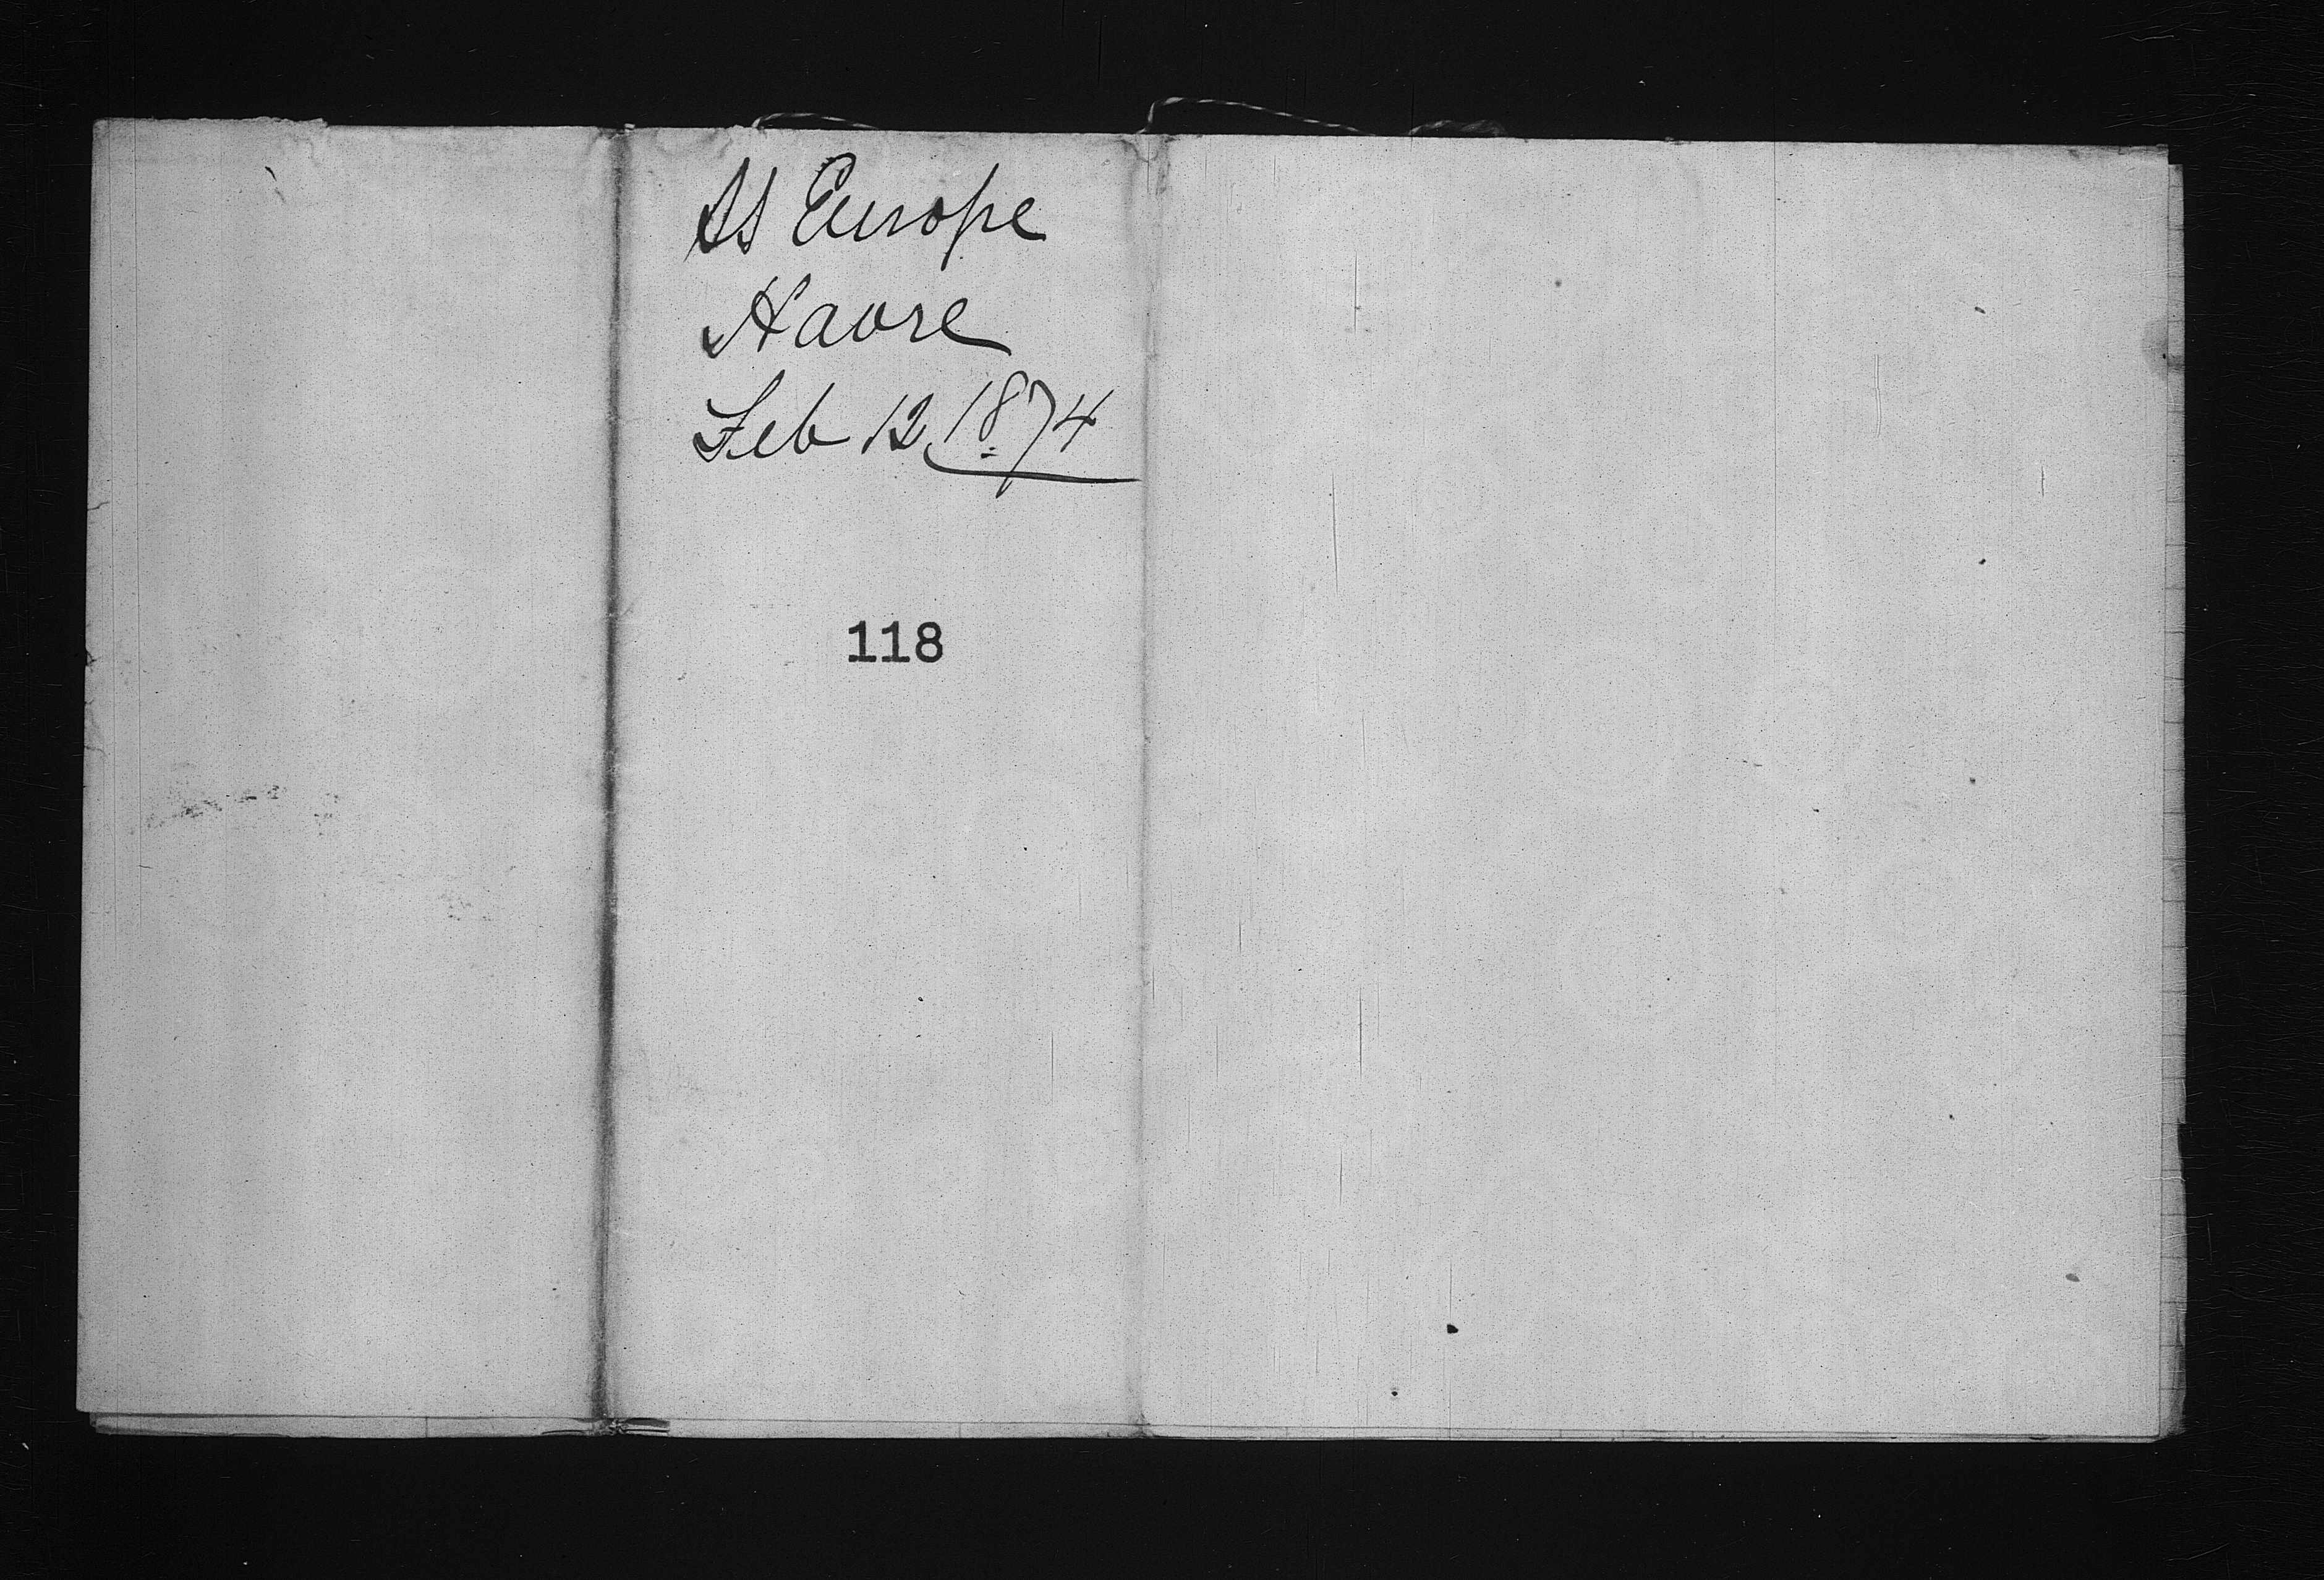 SS Europe
Havre
Feb 12 1874
118